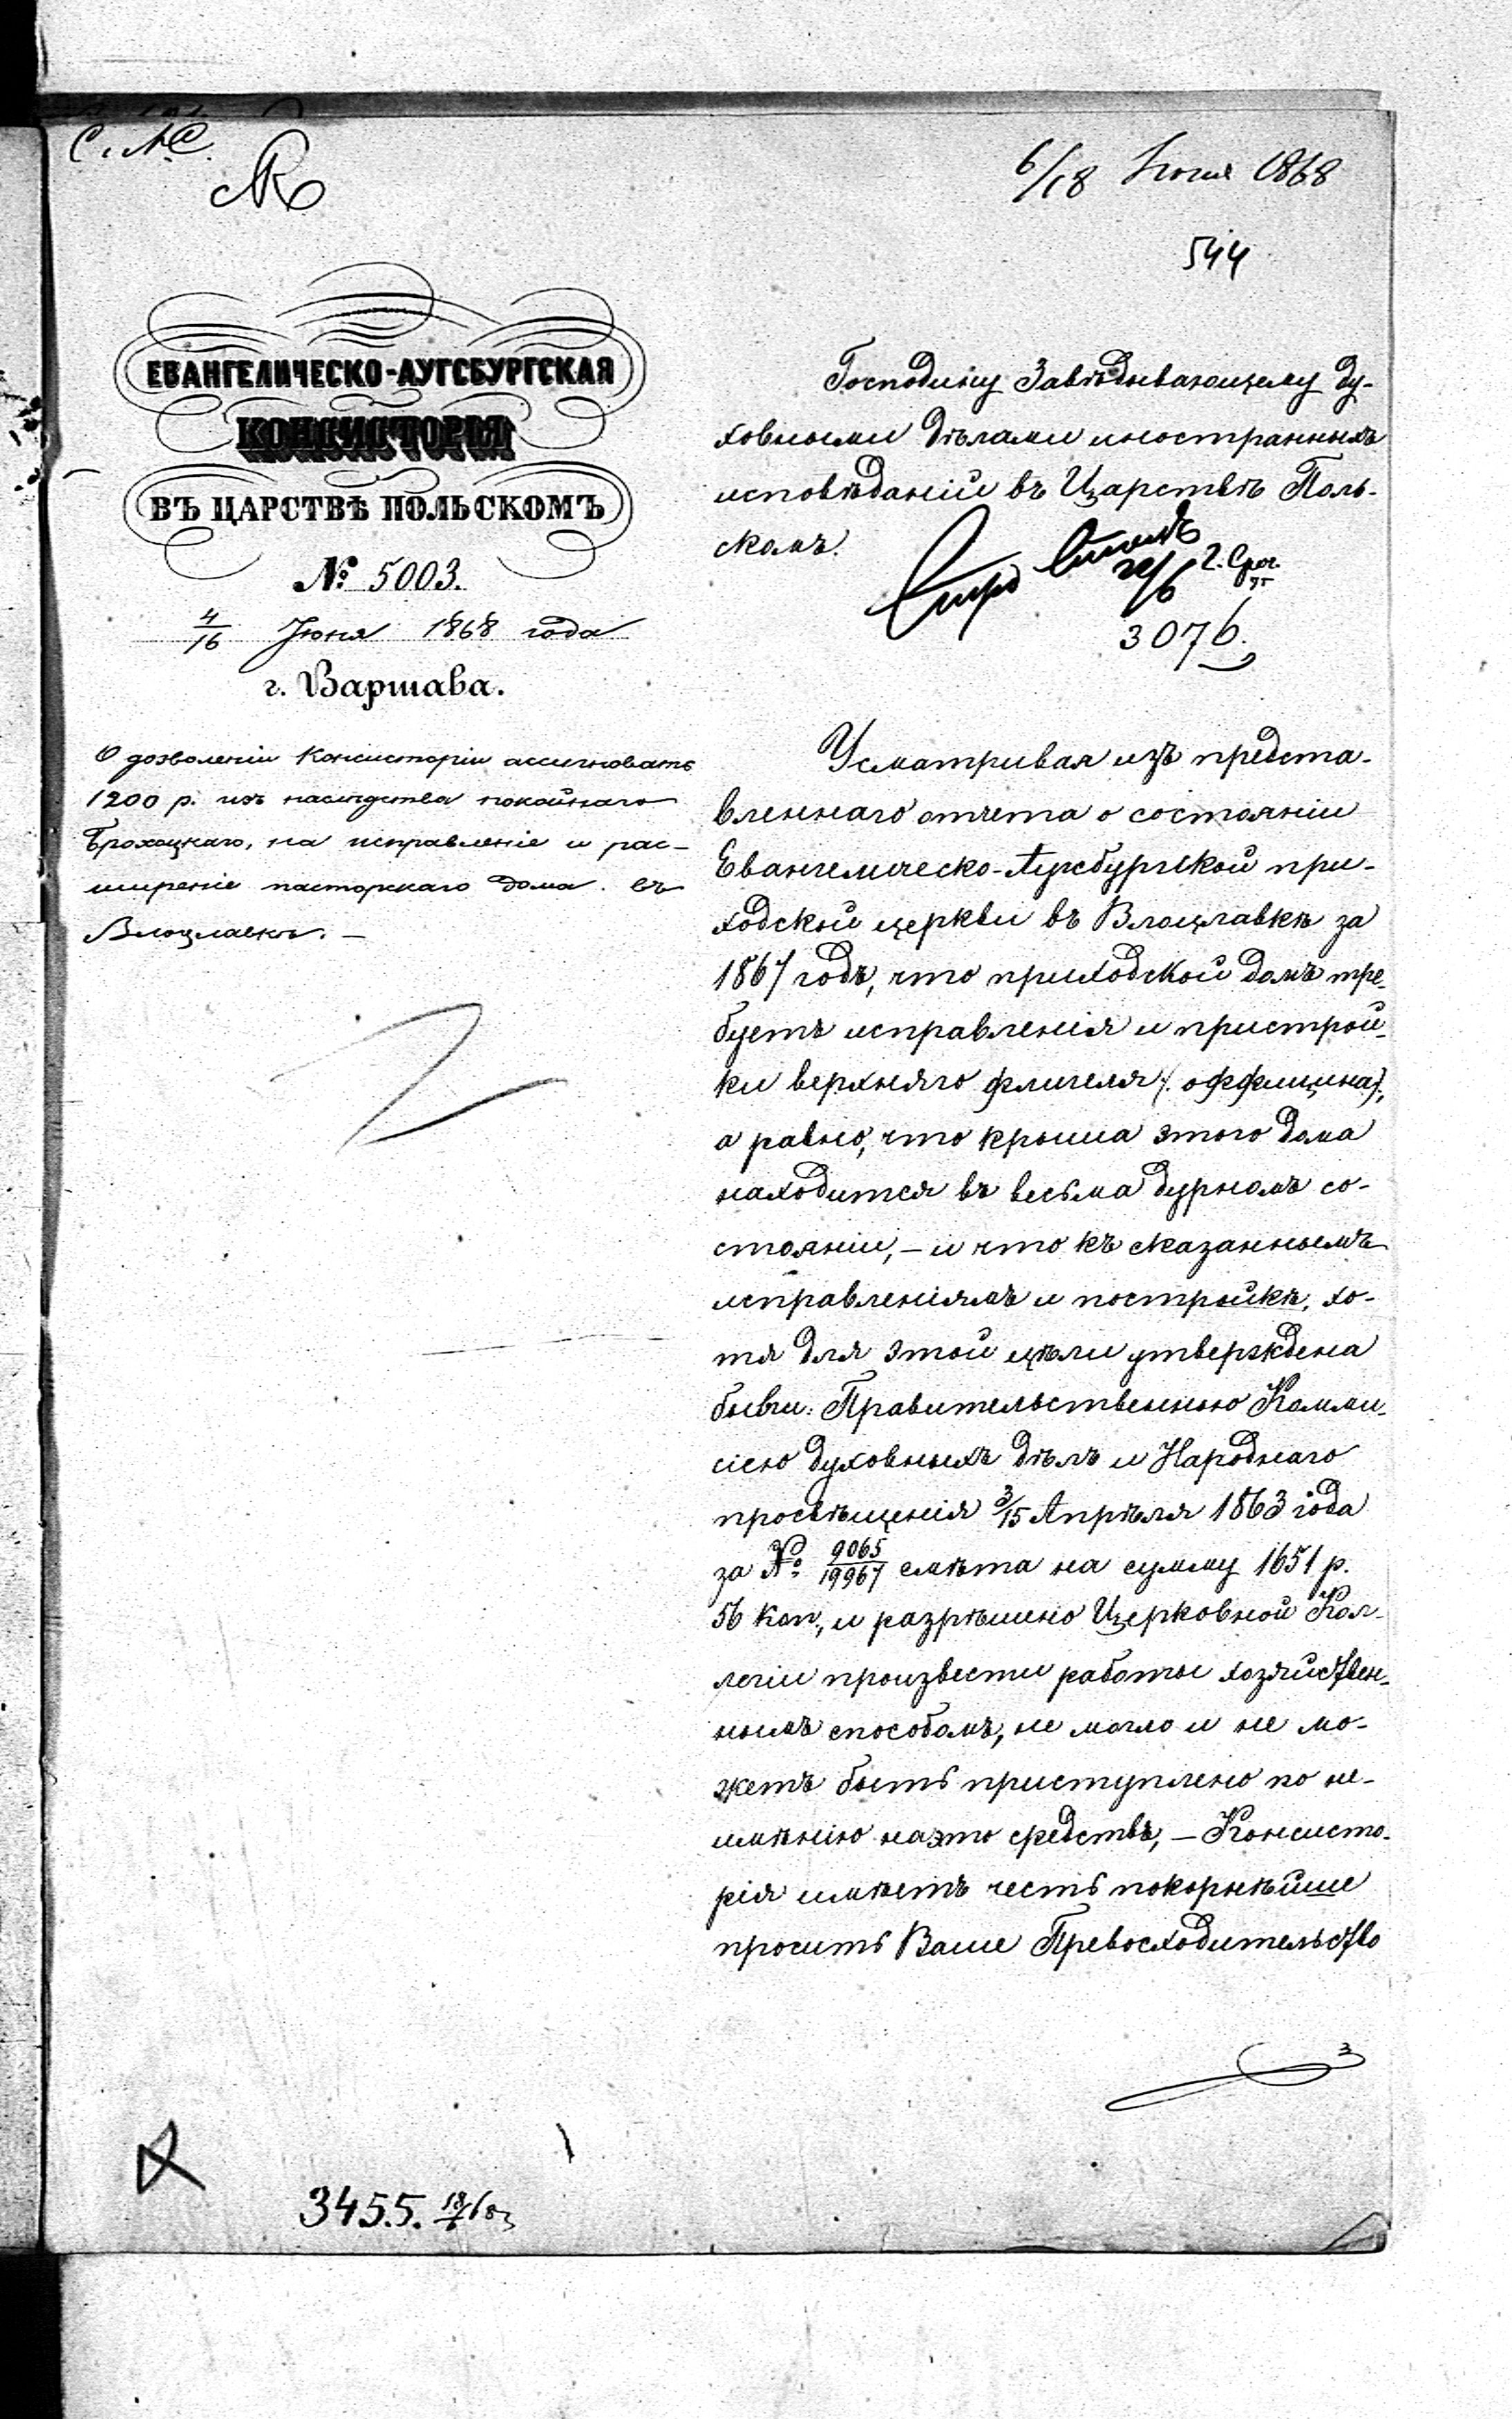 6/18 Іюня 1868
544
ЕВАНГЕЛИЧЕСКО-АУГСБУРГСКАЯ
КОНСИСТОРІЯ
ВЪ ЦАРСТВѢ ПОЛЬСКОМЪ
№ 5003.
4/16 Іюня 1868 года
г. Варшава.
О дозволеніи Консисторіи ассигновать
1200 р. изъ наслѣдства покойнаго
Брохоцкаго, на исправленіе и рас-
ширеніе пасторскаго дома въ
Господину Завѣдывающему ду-
ховными дѣлами иностранныхъ
исповѣданій въ Царствѣ Поль-
скомъ.
3076.
Усматривая изъ предста-
вленнаго отчета о состояніи
Евангелическо-Аугсбургской при-
ходской церкви въ Влоцлавкѣ за
1867 годъ, что приходской домъ тре-
буетъ исправленія и пристрой-
ки верхняго флигеля (оффицина),
а равно, что крыша этого дома
находится въ весьма дурномъ со-
стояніи, – и что къ сказаннымъ
исправленіямъ и постройкѣ, хо-
тя для этой цѣли утверждена
бывш: Правительственною Комми-
сіею духовныхъ дѣлъ и Народнаго
просвѣщенія 3/15 Апрѣля 1863 года
за № 9065/19967 смѣта на сумму 1651 р.
56 коп., и разрѣшено Церковной Кол-
легіи произвести работы хозяйствен-
нымъ способомъ, не могло и не мо-
жетъ быть приступлено по не-
имѣнію на это средствъ, – Консисто-
рія имѣетъ честь покорнѣйше
просить Ваше Превосходительство
3455.